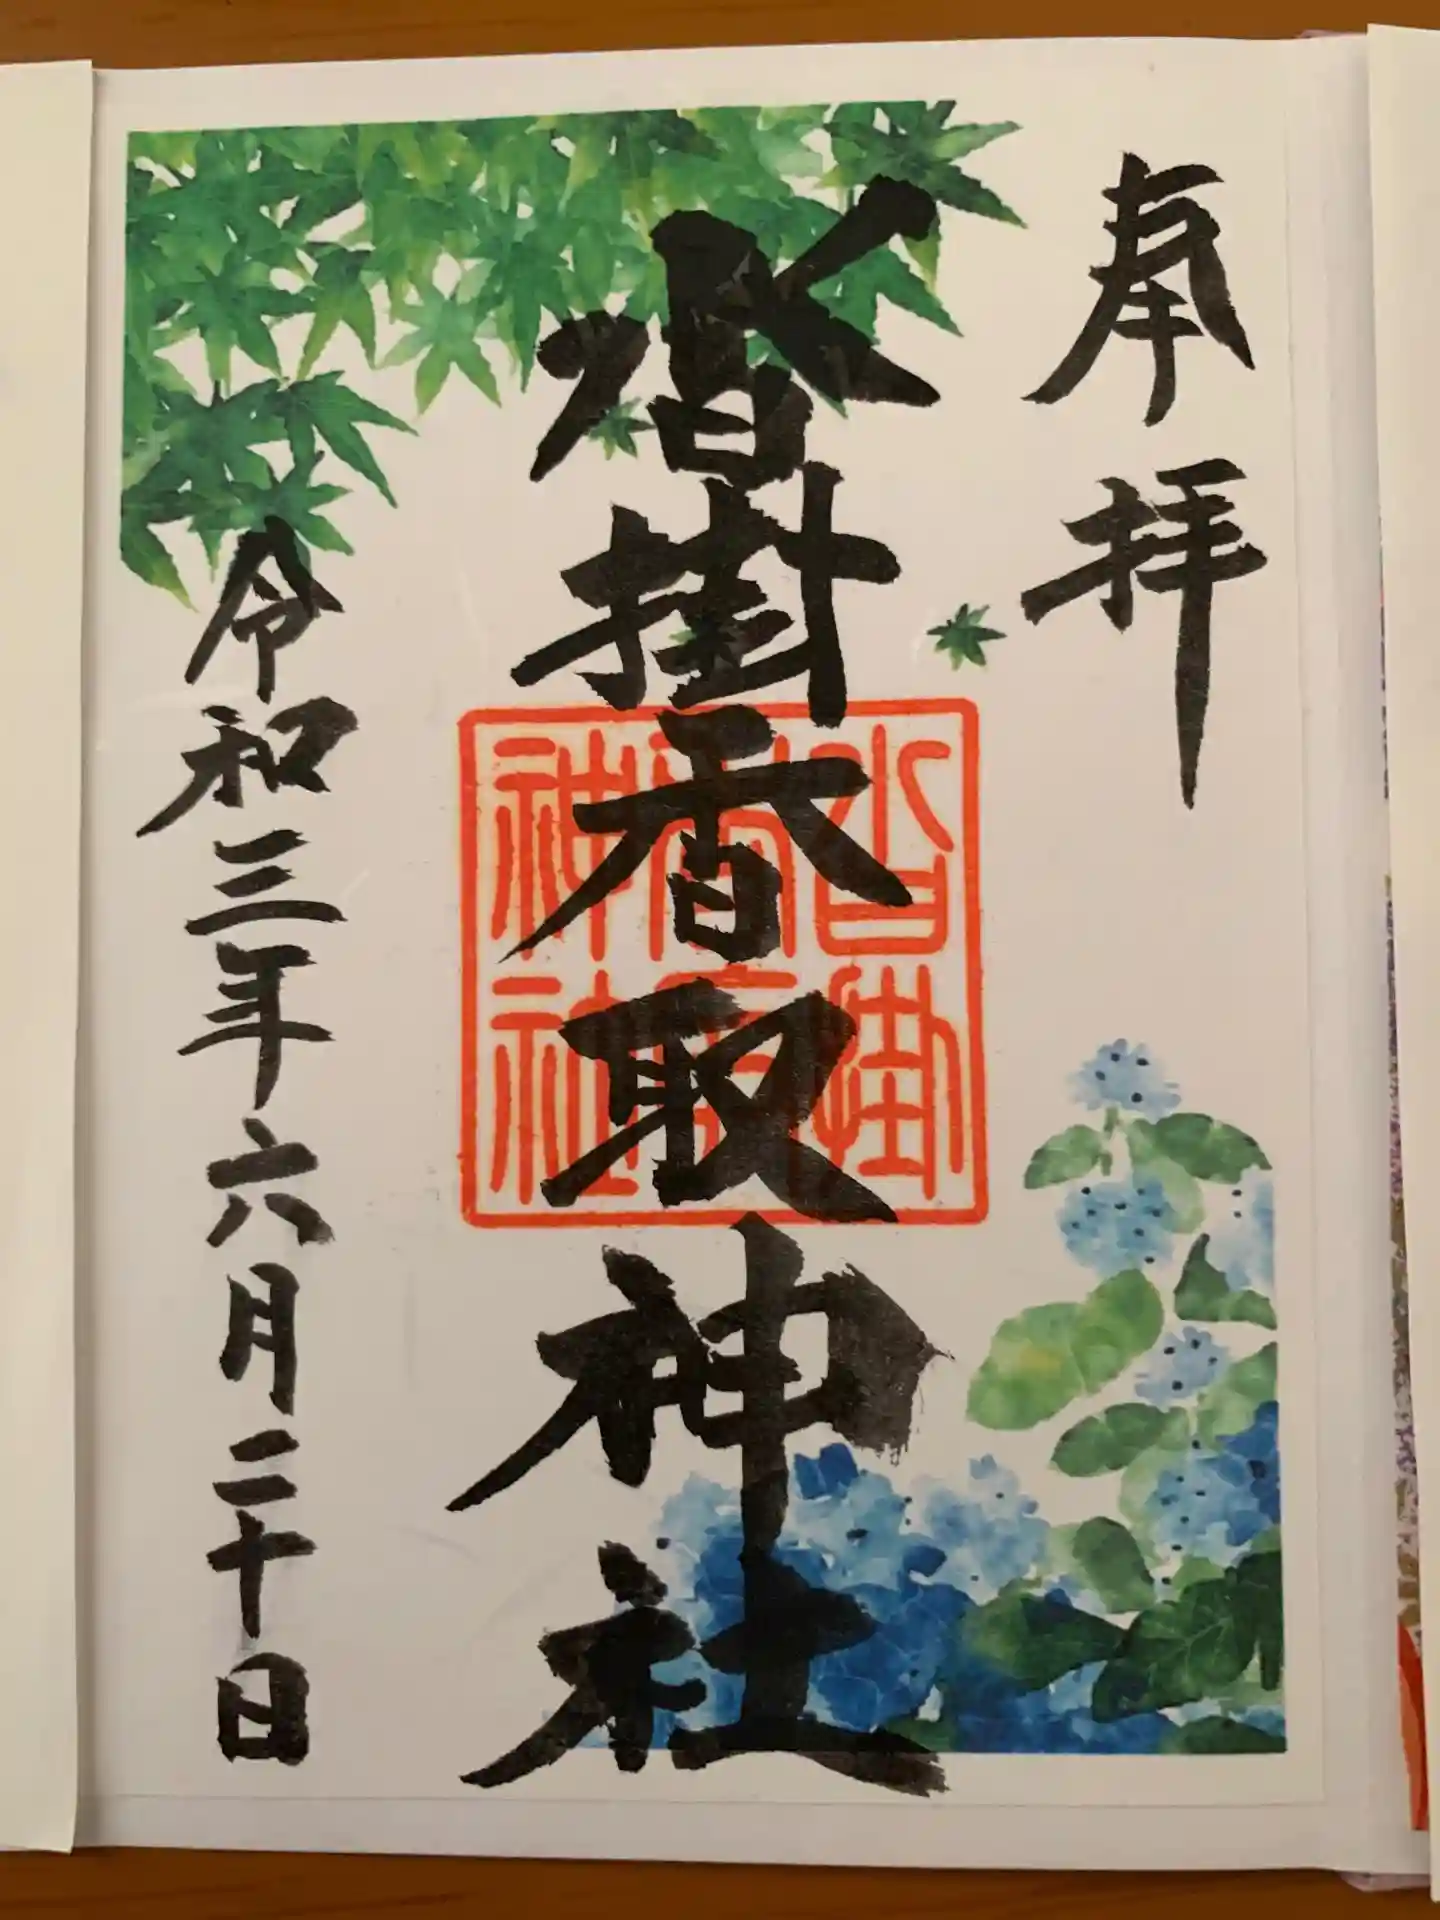 奉拝
沓掛香取神社
沓掛
香取
神社
令和三年六月二十日